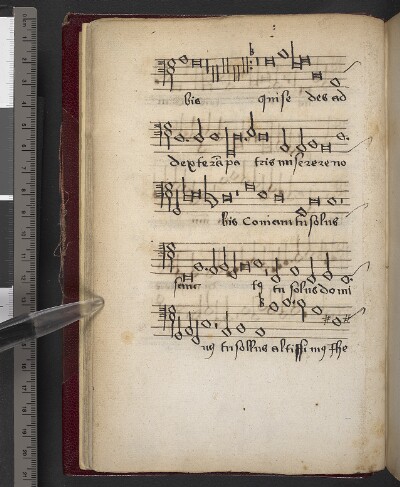 bis qui se des ad
dexterā pa tris miserere no
bis Coniam tu solus
sanc tꝰ tu solus domi
nꝰ tu sollus altissimꝰ Jhe